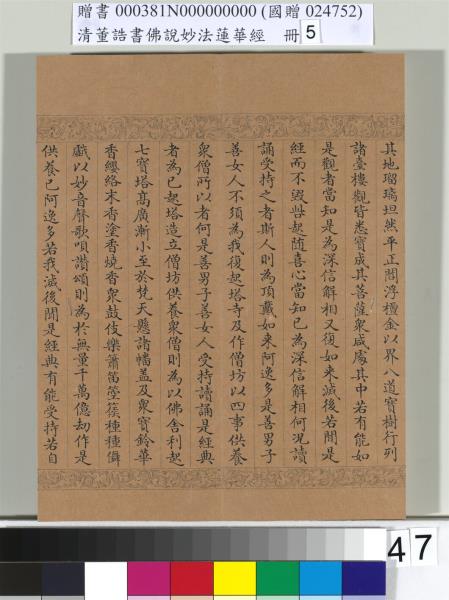 贈書 000381N000000000 (國贈 024752)
清董誥書佛說妙法蓮華經 冊 5
其地瑠璃坦然平正閻浮檀金以界八道寶樹行列
諸臺樓觀皆悉寶成其菩薩衆咸處其中若有能如
是觀者當知是為深信解相又復如来滅後若聞是
經而不毀呰起随喜心當知已為深信解相何況讀
誦受持之者斯人則為頂戴如来阿逸多是善男子
善女人不須為我復起塔寺及作僧坊以四事供養
衆僧所以者何是善男子善女人受持讀誦是經典
者為已起塔造立僧坊供養衆僧則為以佛舍利起
七寶塔髙廣漸小至於梵天懸諸幡盖及衆寶鈴華
香纓絡末香塗香燒香衆鼓伎樂簫笛箜篌種種儛
戲以妙音聲歌唄讚頌則為於無量千萬億劫作是
供養已阿逸多若我滅後聞是經典有能受持若自
47